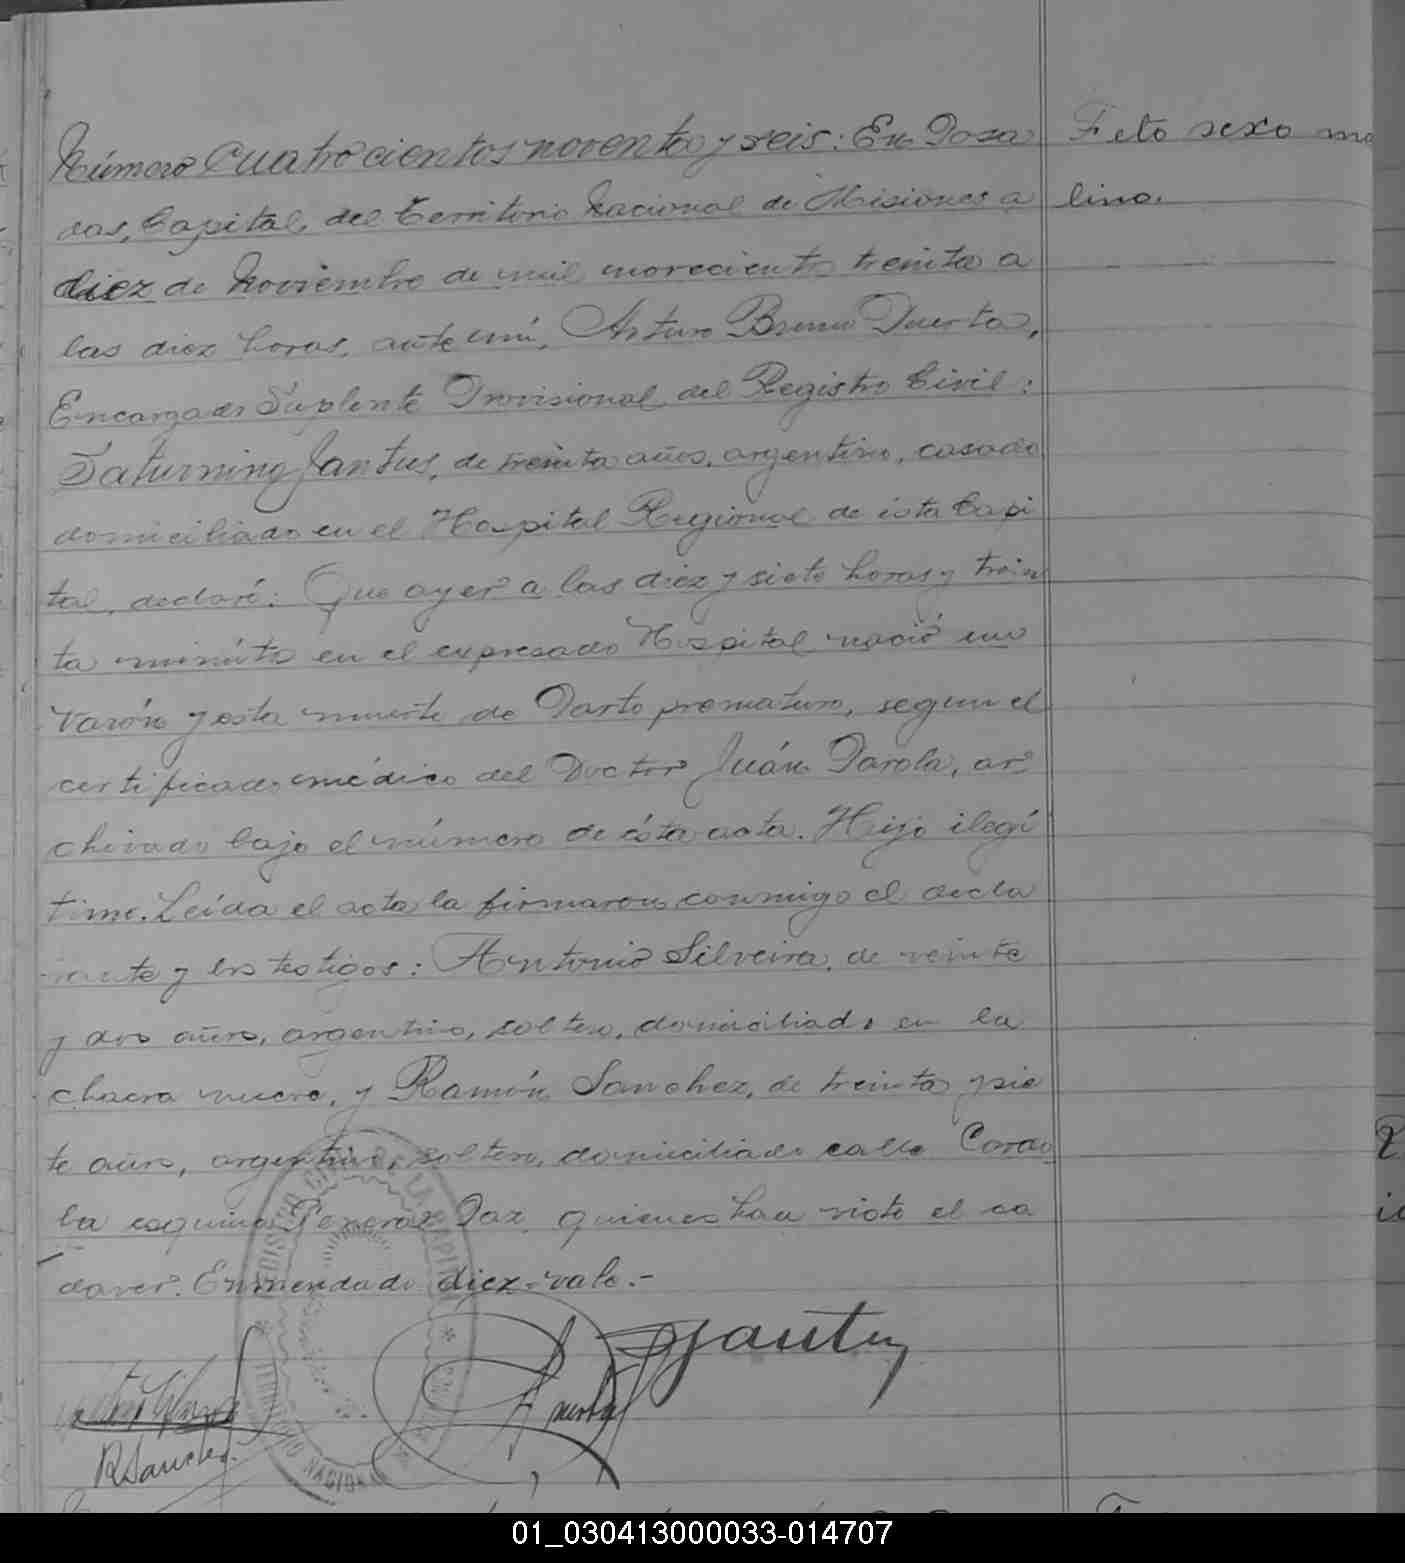 Número Cuatrocientos noventa y seis: En Posa
das, Capital, del Territorio Nacional de Misiones a
diez de Noviembre de mil novecientos treinta a
las diez horas, ante mí, Arturo Bruno Puerta,
Encargado Suplente Provisional del Registro Civil:
Saturnino Jantus, de treinta años, argentino, casado
domiciliado en el Hospital Regional de ésta Capi
tal, declaró: Que ayer a las diez y siete horas y trein
ta minutos en el expresado Hospital nació un
varón y esta muerte de Parto prematuro, segun el
certificado médico del Doctor Juán Parola, ar
chivado bajo el número de ésta acta. Hijo ilegí
timo. Leída el acta la firmaron conmigo el decla
rante y los testigos: Antonio Silveira, de veinte
y dos años, argentino, soltero, domiciliado en la
chacra nueve, y Ramón Sanchez, de treinta y sie
te años, argentino, soltero, domiciliado calle
la esquina General Paz, quienes han visto el ca
daver. Enmendado diez-vale.-
Feto sexo ma
lino.
REGISTRO CIVIL DE LA CAPITAL
TERRITORIO NACIONAL
RSanchez
01_030413000033-014707